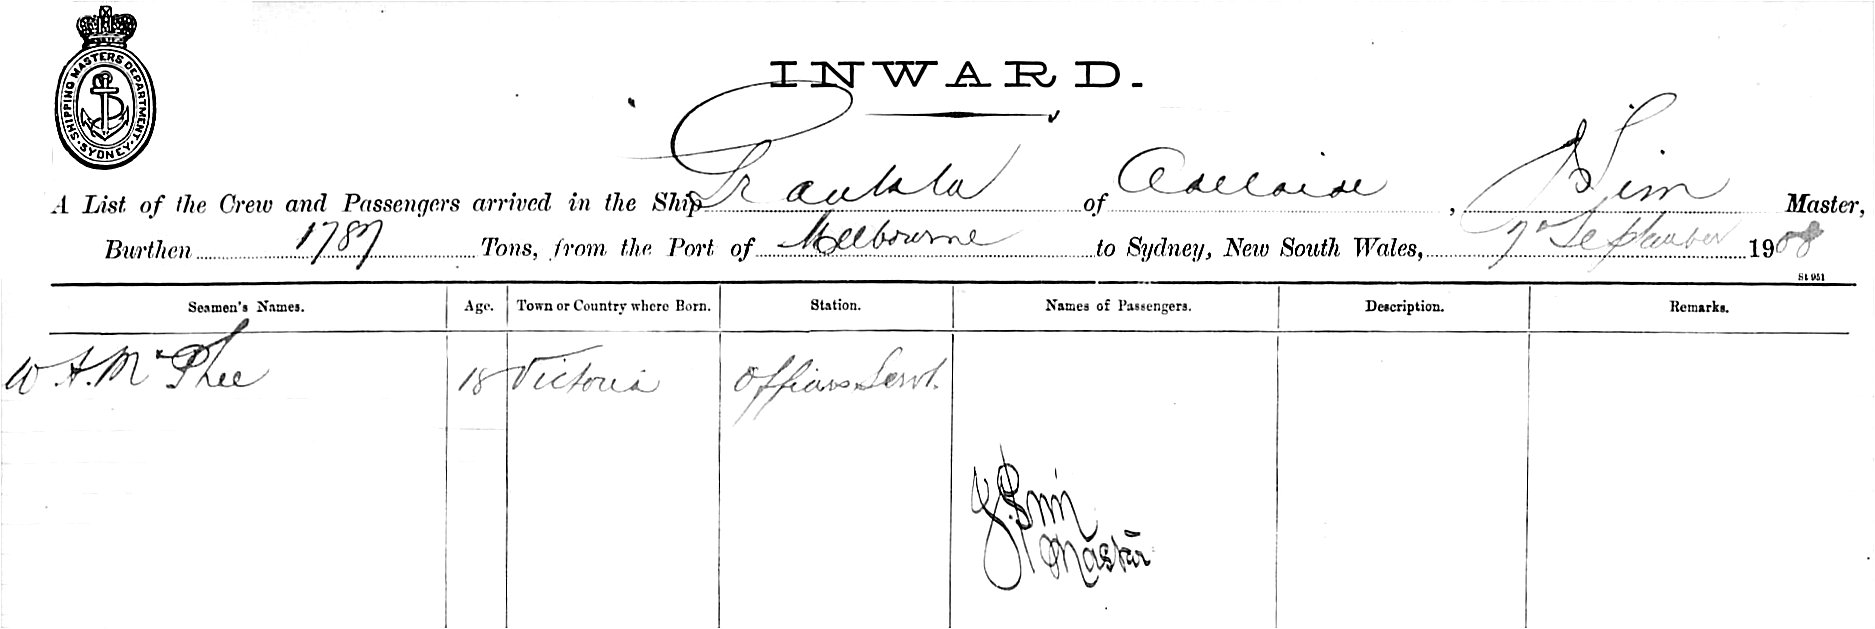 SHIPPING MASTERS DEPARTMENT. SYDNEY.
INWARD.
A List of the Crew and Passengers arrived in the Ship Grantala of Adelaide, J Sim Master,
Burthen 1787 Tons, from the Port of Melbourne to Sydney, New South Wales, 7th September 1908
St 951
Seamen's Names. Age. Town or Country where Born. Station. Names of Passengers. Description. Remarks.
W A. McPhee 18 Victoria Officers Servt.
J. Sim
Master